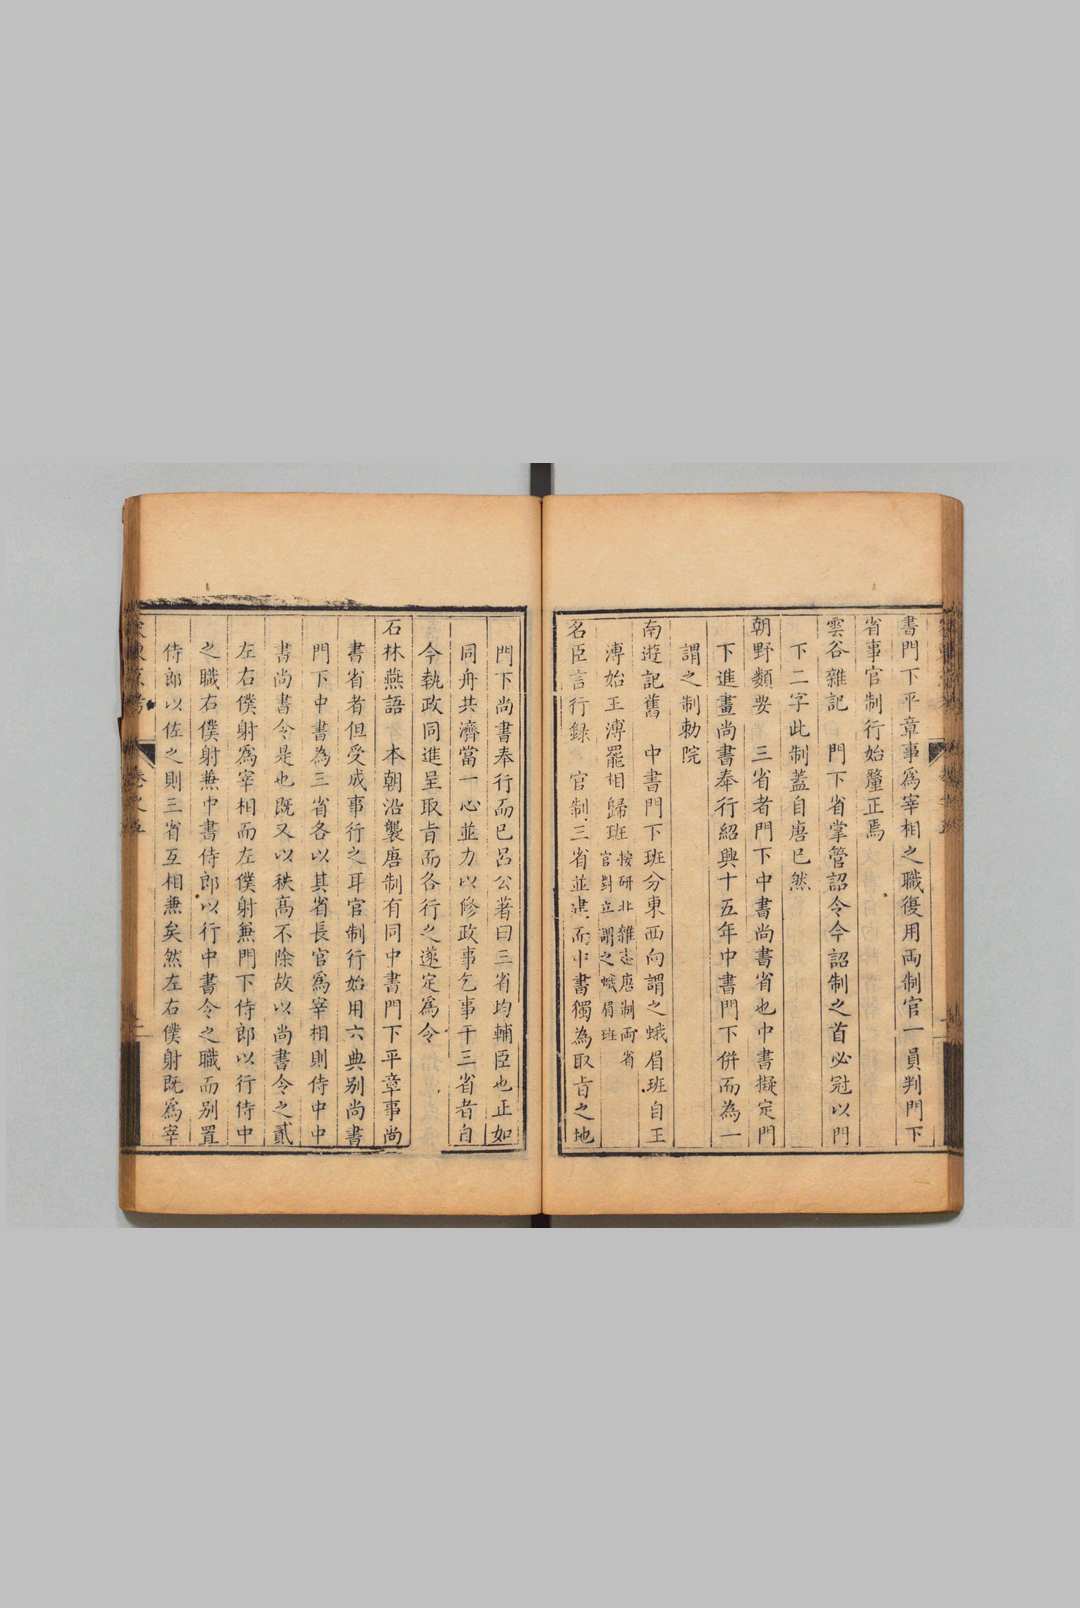 書門下平章事爲宰相之職復用両制官一員判門下
省事官制行始釐正焉
雲谷雜記 門下省掌管詔令今詔制之首必冠以門
下二字此制蓋自唐已然
朝野類要 三省者門下中書尚書省也中書擬定門
下進畫尚書奉行紹興十五年中書門下併而為一
謂之制勅院
南遊記舊 中書門下班分東西向謂之蛾眉班自王
溥始王溥罷相歸班按研北雜志唐制両省
官對立謂之蛾眉班
名臣言行録 官制三省並建而中書獨為取旨之地
門下尚書奉行而已呂公著曰三省均輔臣也正如
同舟共濟當一心並力以修政事乞事干三省者自
今執政同進呈取旨而各行之遂定爲令
石林燕語 本朝沿襲唐制有同中書門下平章事尚
書省者但受成事行之耳官制行始用六典别尚書
門下中書為三省各以其省長官爲宰相則侍中中
書尚書令是也既又以秩高不除故以尚書令之貳
左右僕射爲宰相而左僕射兼門下侍郎以行侍中
之職右僕射兼中書侍郎以行中書令之職而别置
侍郎以佐之則三省互相兼矣然左右僕射既爲宰
卷之五